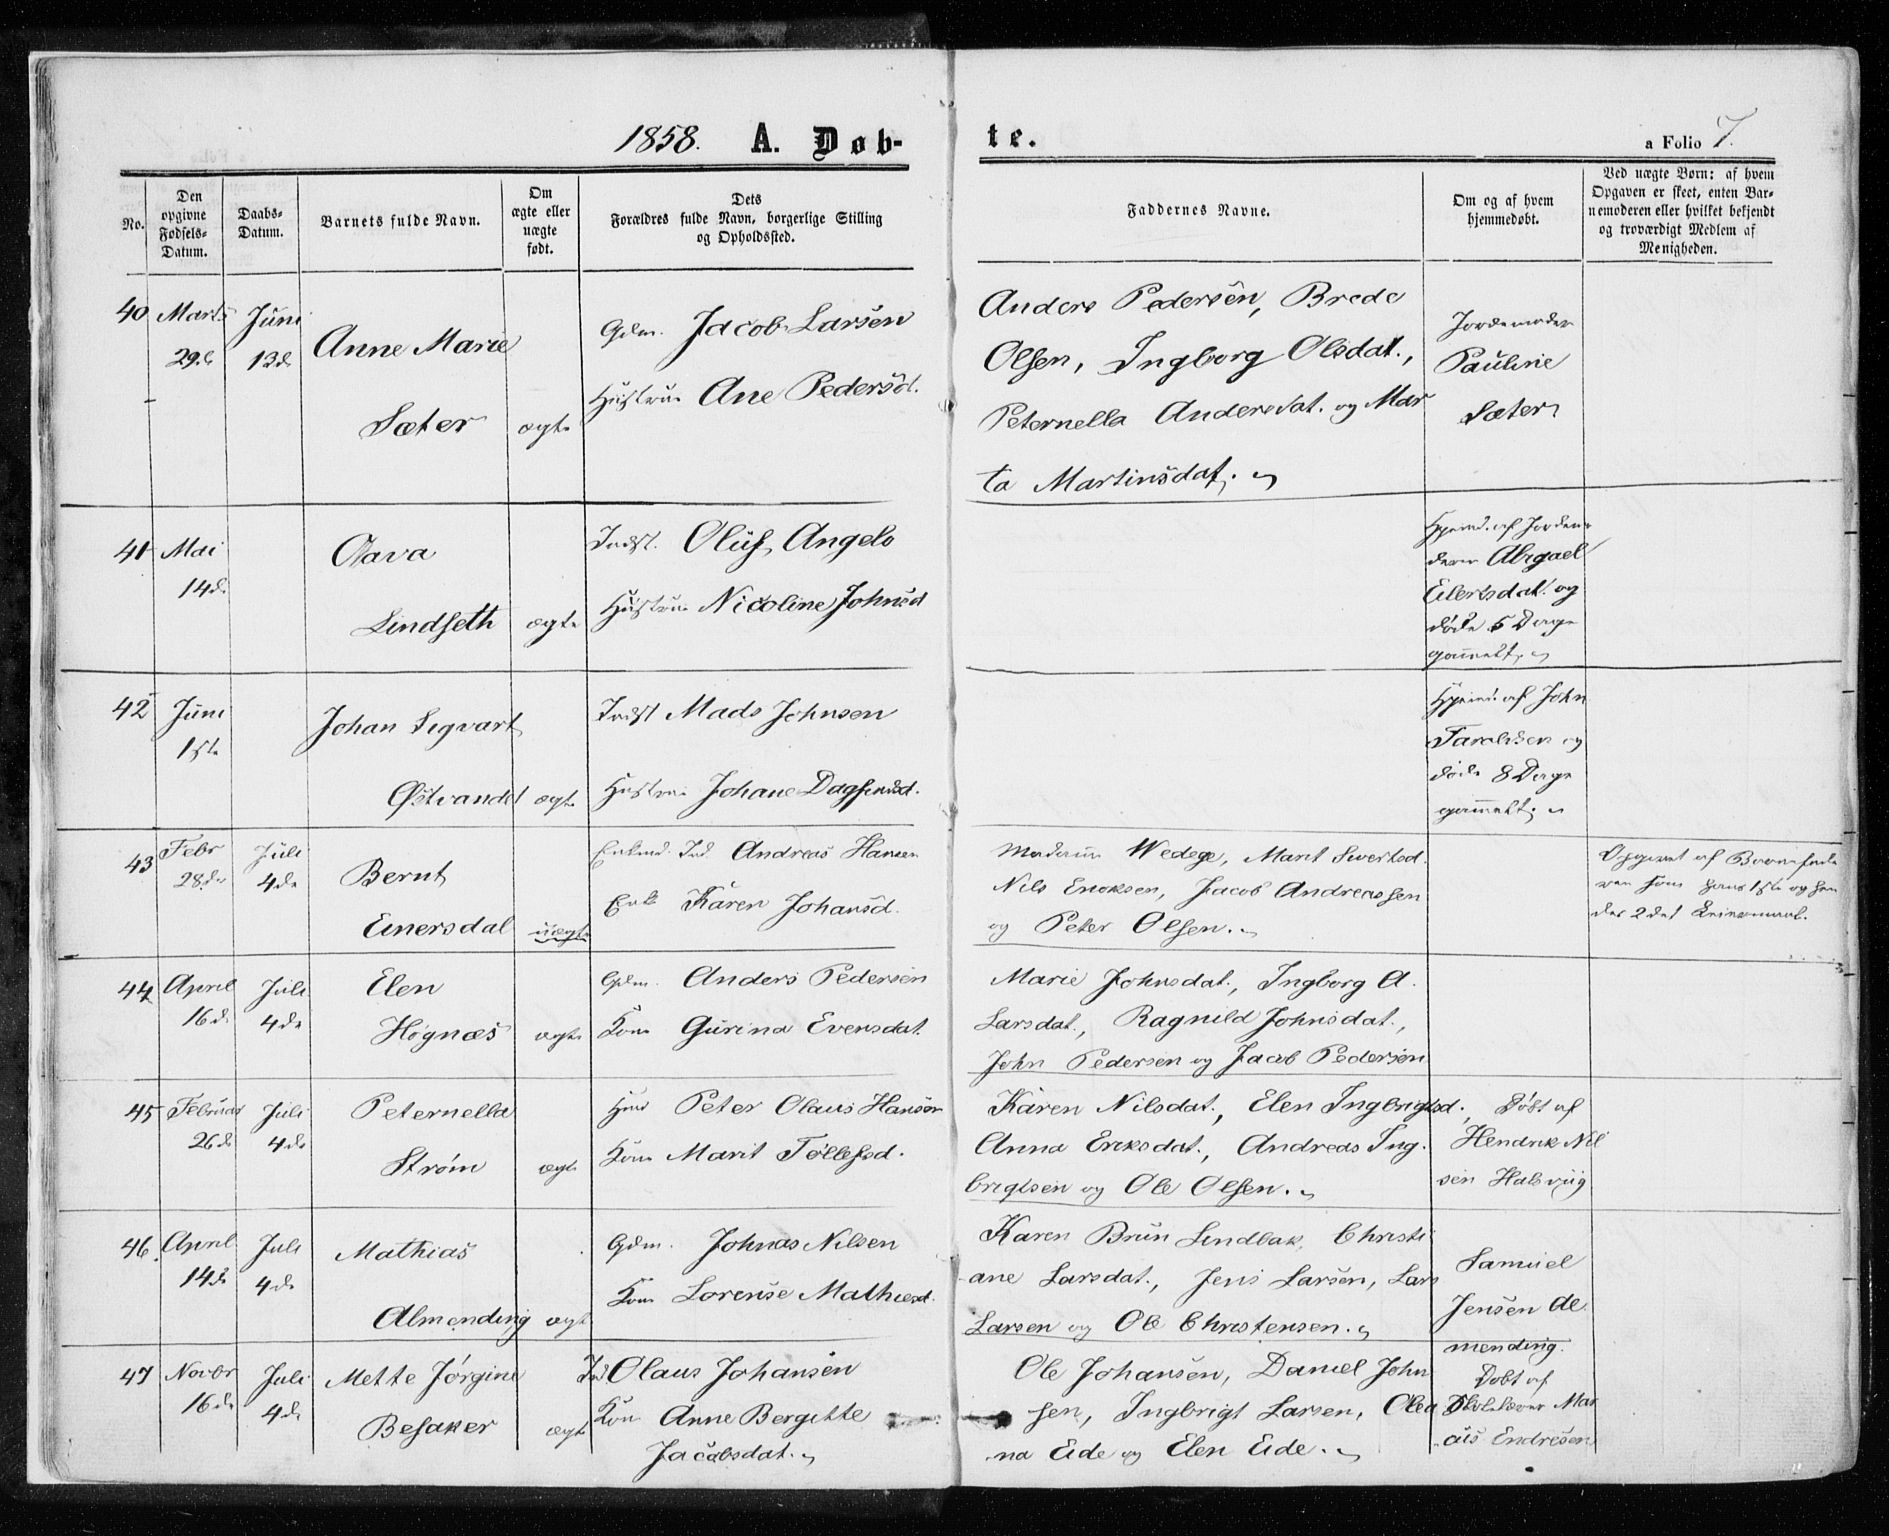 1858. A. Døb-
te.
a Folio 7.
No.
Den opgivne Fødsels-Datum.
Daabs-Datum.
Barnets fulde Navn.
Om ægte eller uægte født.
Dets Forældres fulde Navn, borgerlige Stilling og Opholdssted.
Faddernes Navne.
Om og af hvem hjemmedøbt.
Ved uægte Børn: af hvem Opgaven er skeet, enten Barnemoderen eller hvilket bekjendt og troværdigt Medlem af Menigheden.
40 Marts Juni
29de 13de
Anne Marie
Sæter ægte
Gdm. Jacob Larsen
Hustru Ane Pedersd.
Anders Pedersen, Brede
Olsen, Ingborg Olsdat.,
Peternella Andersdat. og Mar
ta Martinsdat.
Jordemoder
Pauline
Sæter
41 Mai
14de
Olava
Lindseth ægte
Indst. Oluf Angelo
Hustru Nicoline Johnsd
Hjemd. af Jordem
deren Abigael
Eilertsdat. og
døde 5 Dage
gammelt.
42 Juni
1ste
Johan Sigvart
Østvandet ægte
Indst Mads Johnsen
Hustru Johane Dagfindsd.
Hjemd. af John
Taraldsen og
døde 8 Dage
gammelt.
43 Febr Juli
28de 4de
Bernt
Einersdal uægte
Enkemd. Ind. Andreas Hansen
Enke Karen Johansd.
Madam Wedege, Marit Sivertsd.
Nils Enoksen, Jacob Andreassen
og Peter Olsen.
Opgivet af Barnefade
ren som hans 1ste og hen
des 2det Leiermaal.
44 April Juli
16de 4de
Elen
Høgnæs ægte
Gdm. Anders Pedersen
Kone Gurina Evensdat.
Marie Johnsdat., Ingborg A.
Larsdat., Ragnild Johnsdat.,
John Pedersen og Jacob Pedersen
45 Februar Juli
26de 4de
Peternella
Strøm ægte
Hmd Peter Olaus Hansen
Kone Marit Tollefsd.
Karen Nilsdat., Elen Ingbrigtsd.,
Anna Eriksdat., Andreas Ing.
brigtsen og Ole Olsen.
Døbt af
Hendrik Nil
sen Halsviig
46. April Juli
14de 4de
Mathias
Almending ægte
Gdm. Johnas Nilsen
Kone Lorense Mathiesd.
Karen Brun Lindbak, Christi
ane Larsdat., Jens Larsen, Lars
Larsen og Ole Christensen.
Samuel
Jensen Al
mending.
47 Novbr Juli
16de 4de
Mette Jørgine
Besaker ægte
Ind Olaus Johansen
Kone Anne Bergitte
Jacobsdat.
Ole Johansen, Daniel John
sen, Ingbrigt Larsen, Olea
na Eide og Elen Eide.
Døbt af
Skolelærer Mar
cus Endresen